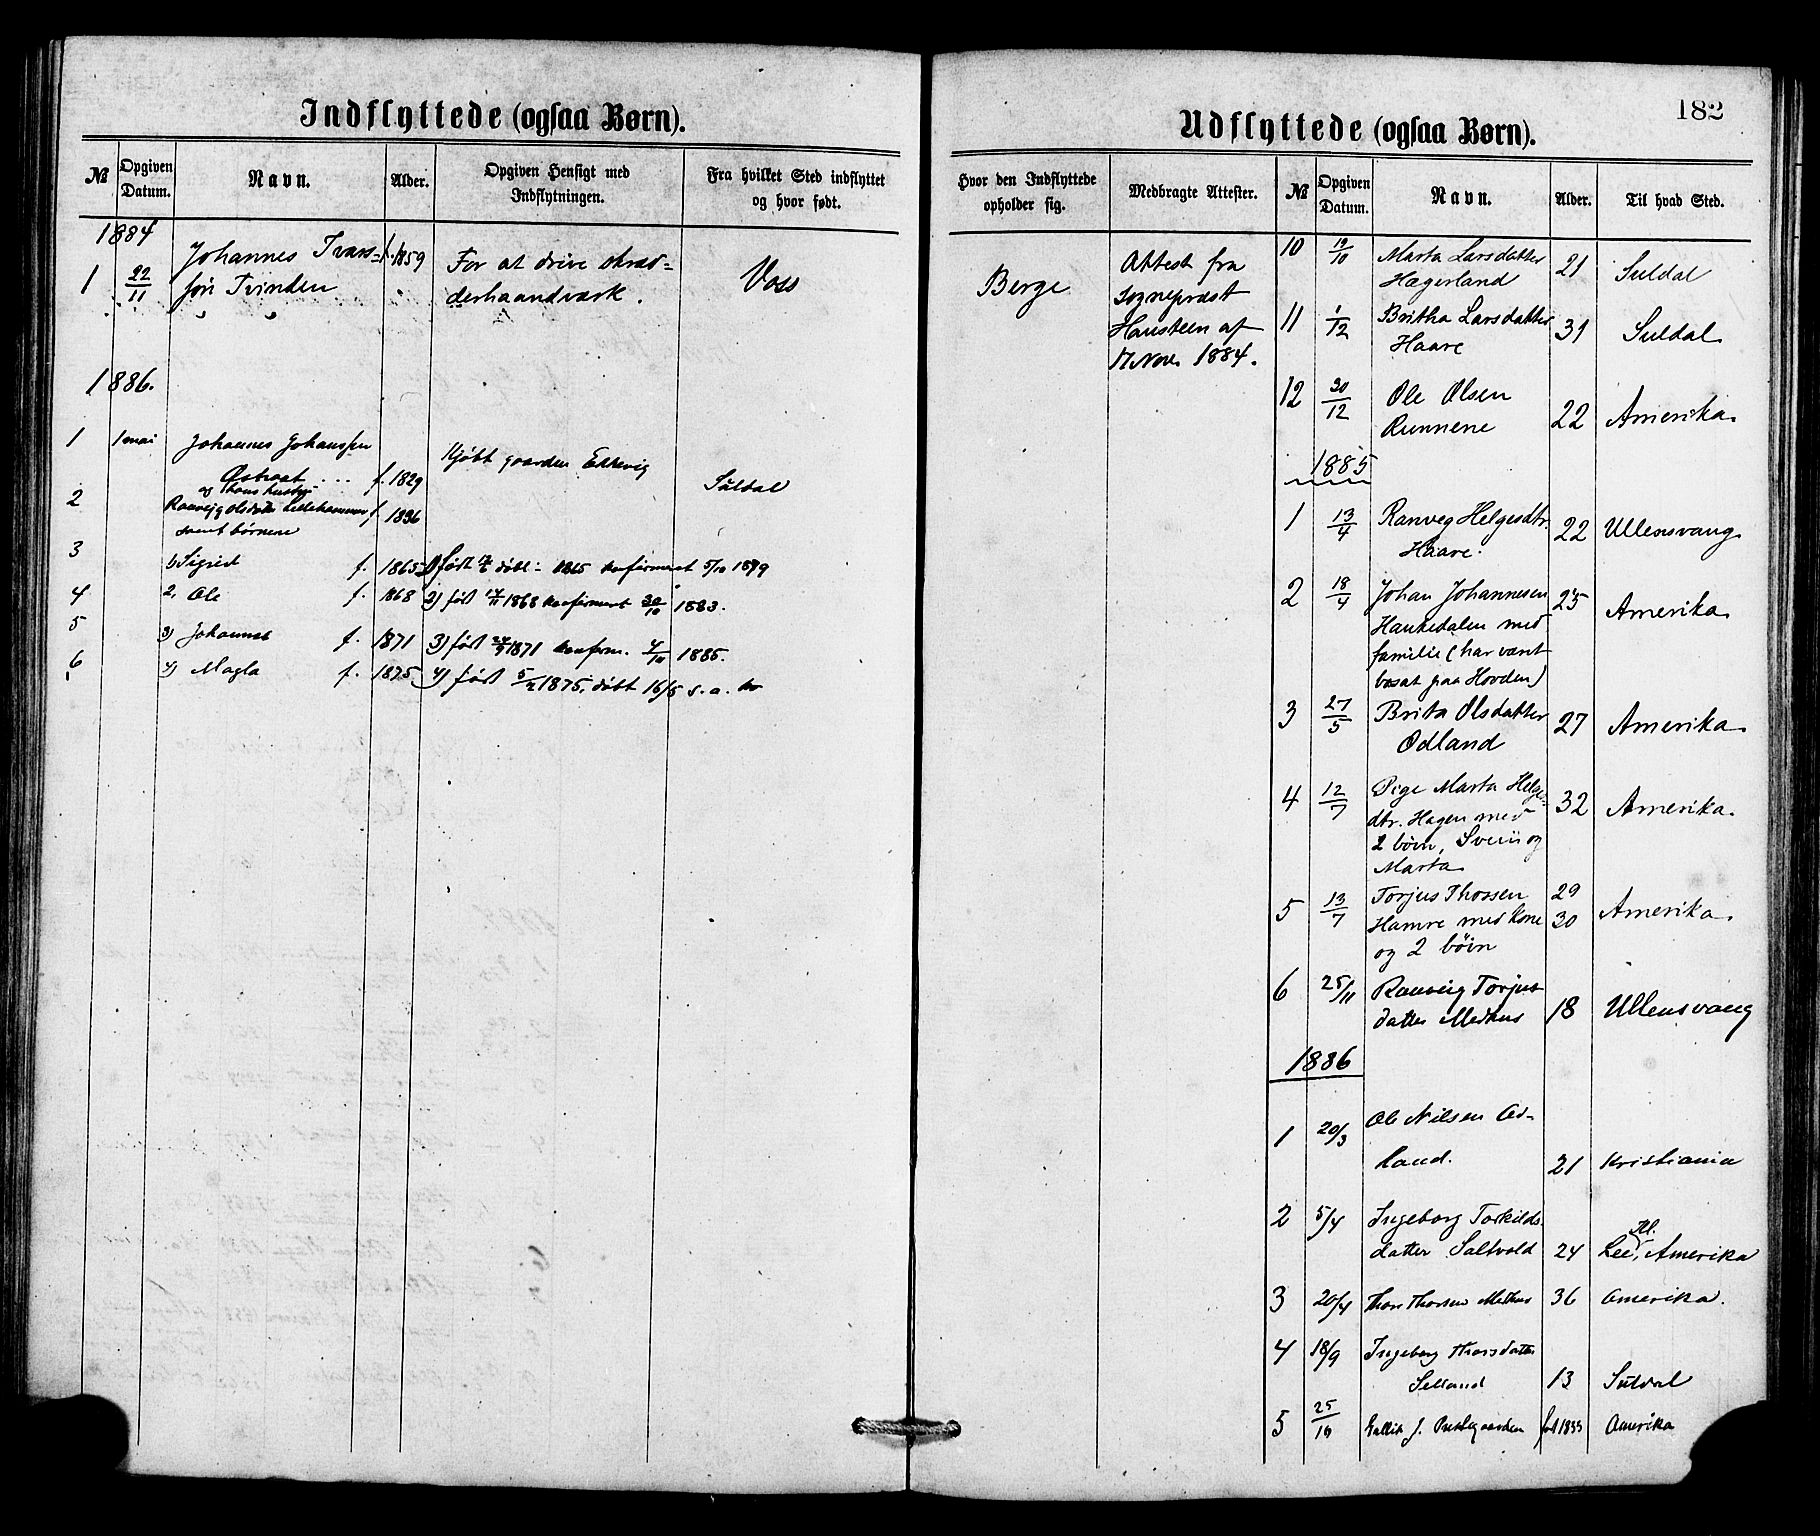 Indflyttede (ogsaa Børn).
№ Opgiven Datum. Navn. Alder. Opgiven Hensigt med Indflytningen. Fra hvilket Sted indflyttet og hvor født.
1884
Johannes Ivars- f. 1859 For at drive skræd-
1 22/11 søn Tvinden derhaandværk. Voss
1886.
1 1 mai Johannes Johanssen
Kjøbt gaarden
Østraat f. 1829 Suldal
og hans hustru
2 Lillehammer f. 1836
samt børnene
3 1) Sigrid f. 1865 1) født døbt 1865 konfirmert 5/10 1879
4 2, Ole f. 1868 2) født 1868 konfirmert 1883.
5 3) Johannes f. 1871 3) født 1871 konfirm. 4/10 1885.
6 4) Magla f. 1875 4) født 1875, døbt 16/5 s. a.
Udflyttede (ogsaa Børn).
182
Hvor den Indflyttede opholder sig. Medbragte Attester. № Opgiven Datum. Navn. Alder. Til hvad Sted.
Berge
Attest fra
Sogneprest
Hansteen af
17 Nov. 1884.
10 19/10 Marta Larsdatter
Hægerland 21 Suldal
11 1/12 Britha Larsdatter
Haave 31 Suldal
12 30/12 Ole Olsen
Runnene 22 Amerika.
1885
1 13/4 Ranveg Helgesdtr.
Haave. 22 Ullensvang
2 18/4 Johan Johannesen 25 Amerika
Haukedalen med
familie (har vænt
bosat paa Hovden)
3 27/5 Brita Olsdatter
Odland 27 Amerika.
4 12/7 Pige Marta Helges-
dtr. Hagen med 32 Amerika.
2 børn, Svein og
Marta
5 13/7 Torjus Thorsen 29
Hamre med kone 30 Amerika.
og 2 børn
6 25/11 Ranveig Torjus-
datter Medhus 18 Ullensvang
1886
1 20/3 Ole Nilsen Od-
land. 21 Kristiania
2 5/4 Ingeborg Torkilds-
datter Saltvold 24 Lee, Ill. Amerika
3 20/4 Thore Thorsen Methus 36 Amerika.
4 18/9 Ingeborg Thorsdatter
Selland 13 Suldal
5 25/10 J. Prestegaarden Amerika